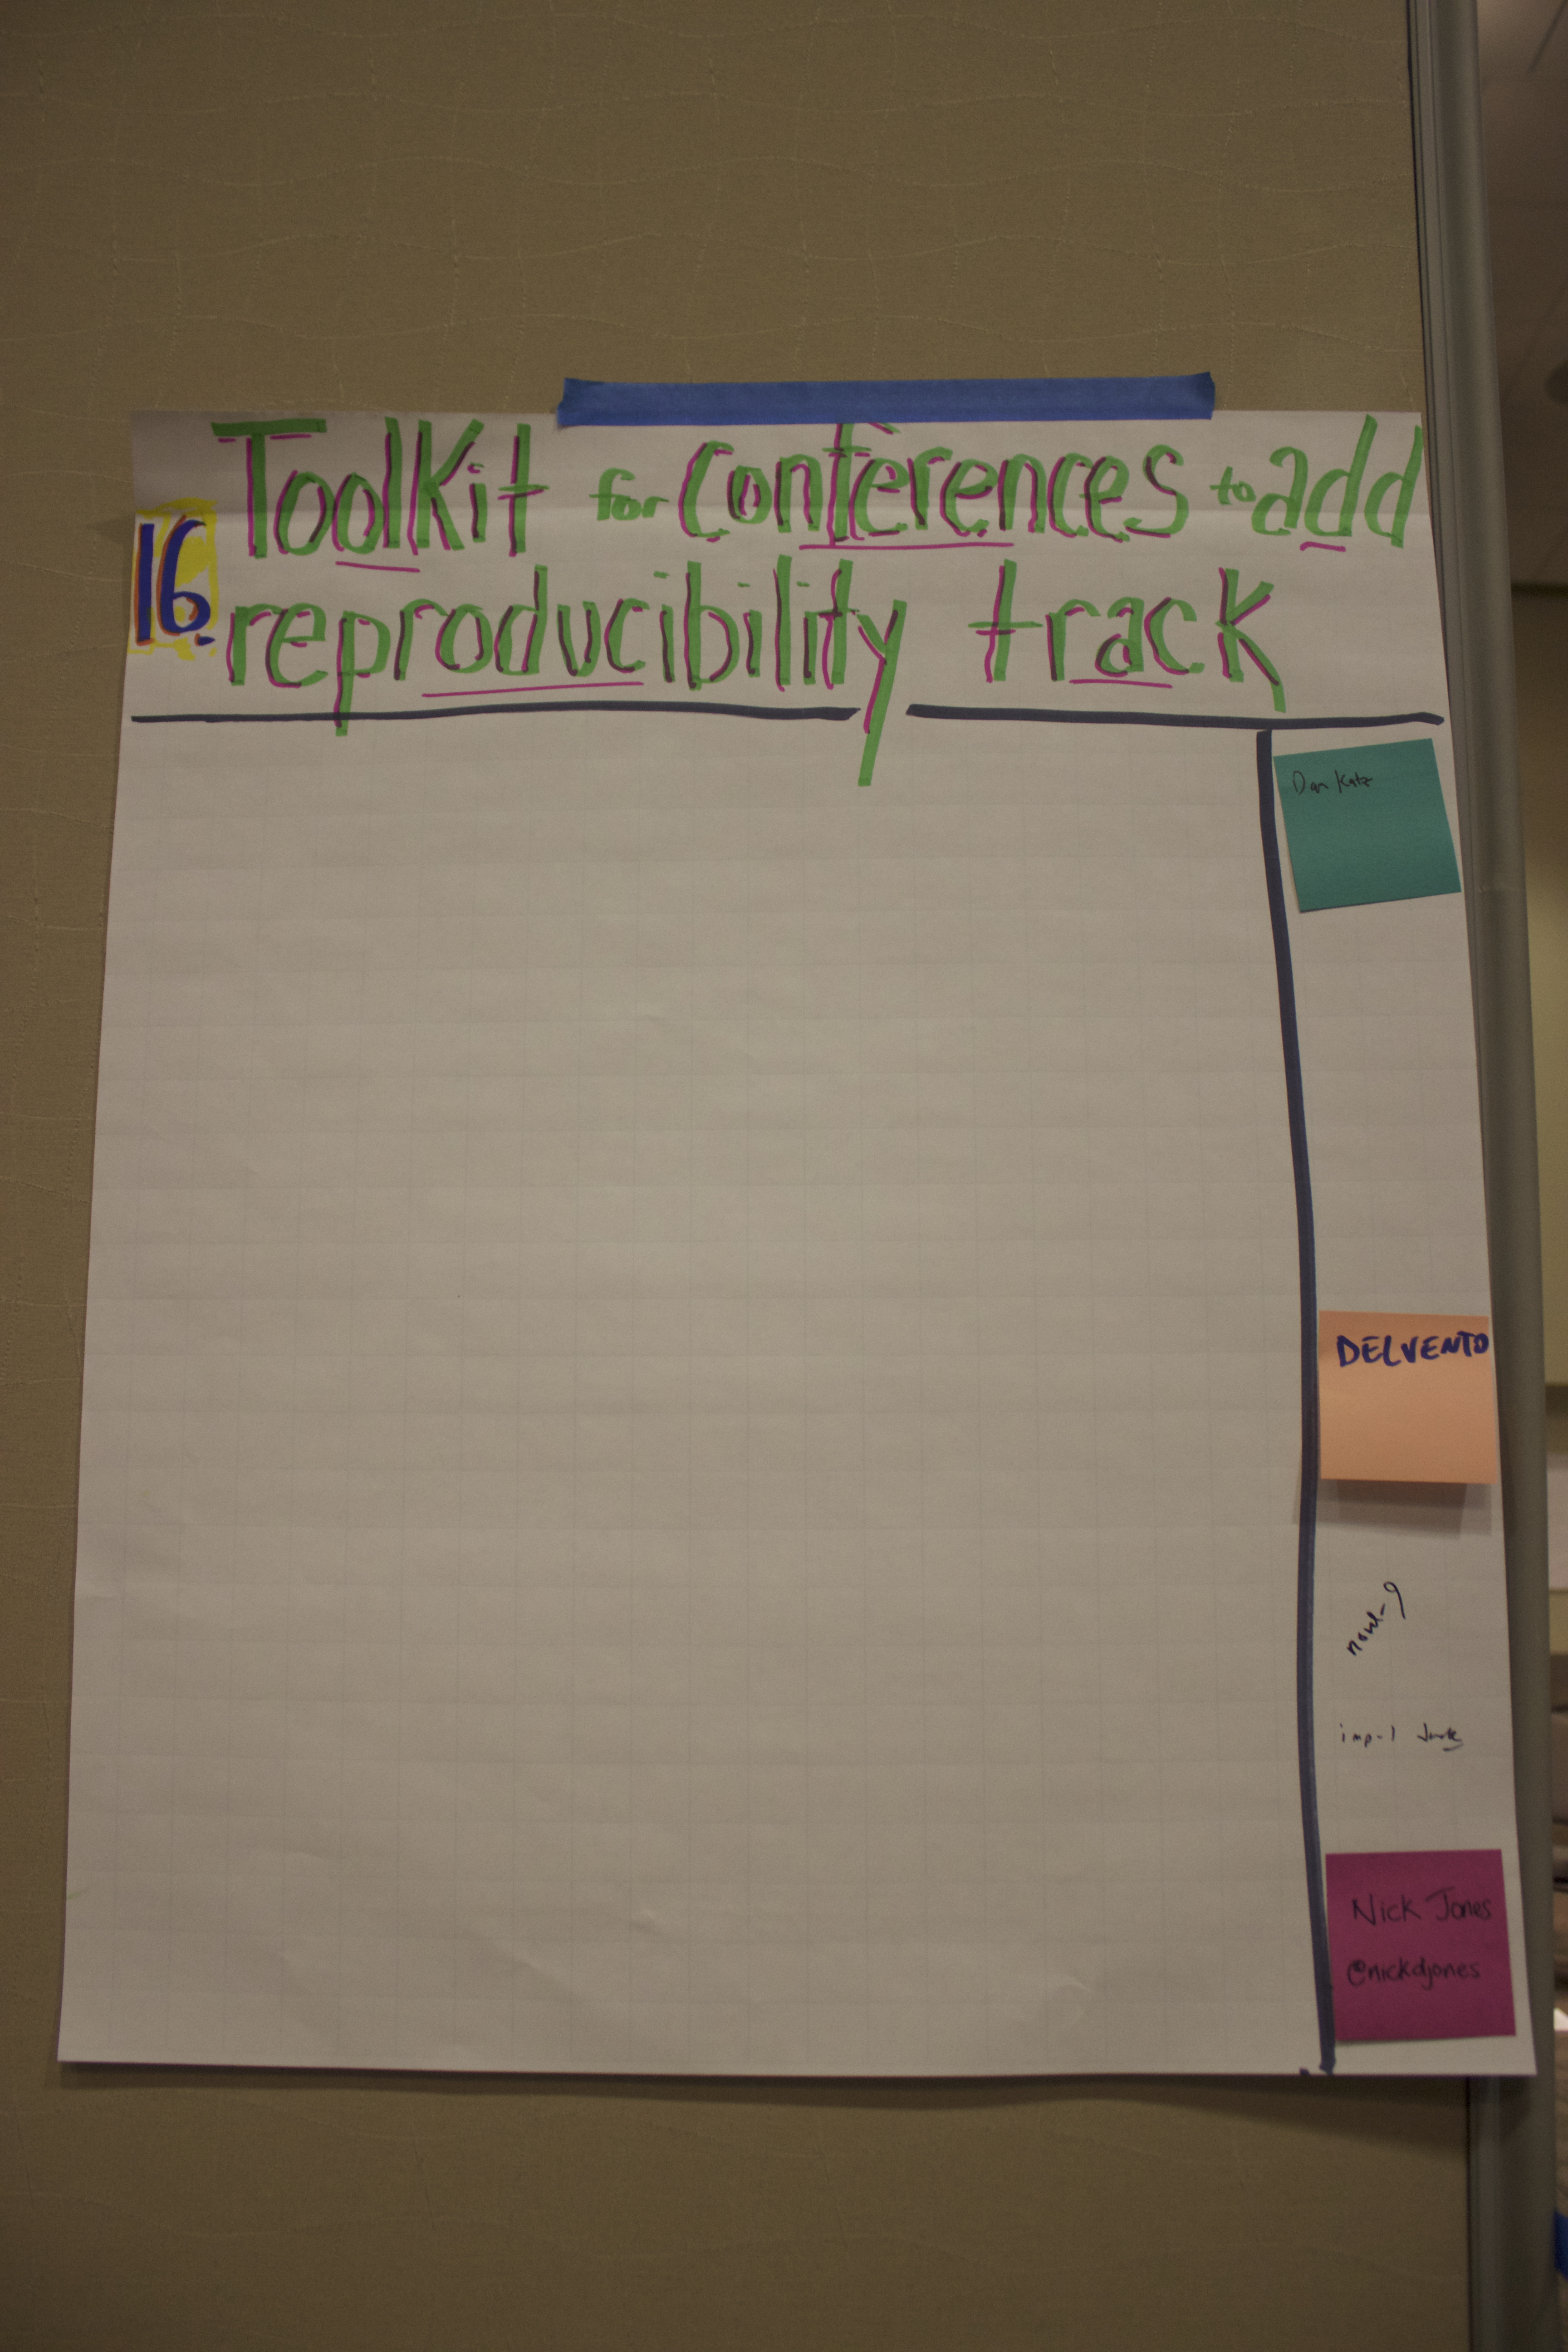 Toolkit for Conferences to add
16. reproducibility track
Dan Katz
DELVENTO
imp-1
Nick Jones
@nickdjones